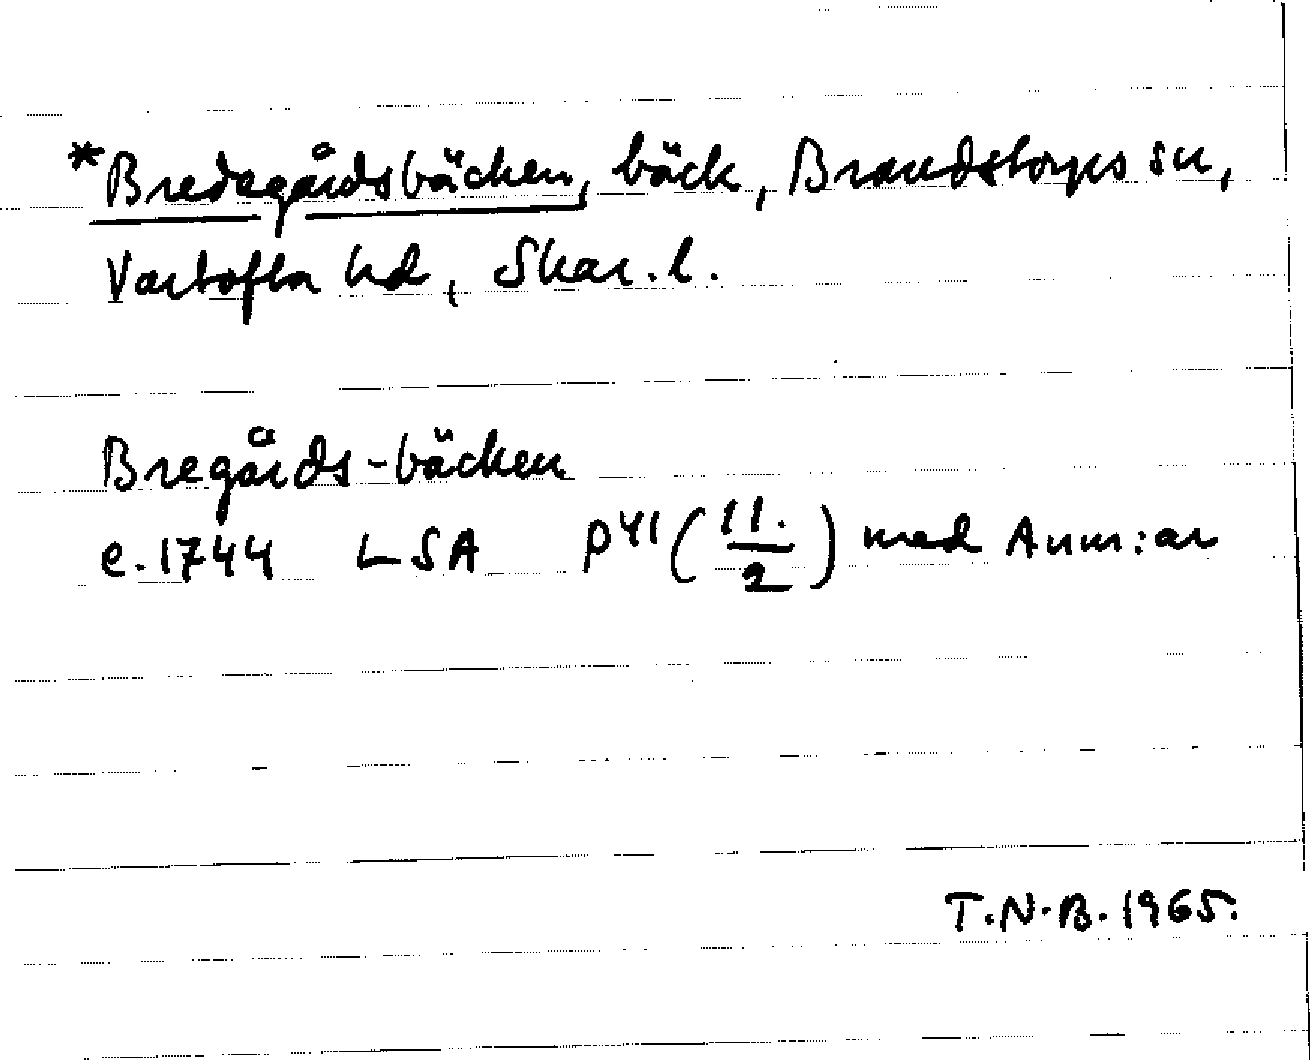 *Bredegårdsbäcken, bäck, Brandstorps sn,
Vartofta hd, Skar. l.
Bregårds-bäcken
e. 1744 LSA P41 (11./2) med Anm:ar
T.N.B. 1965.